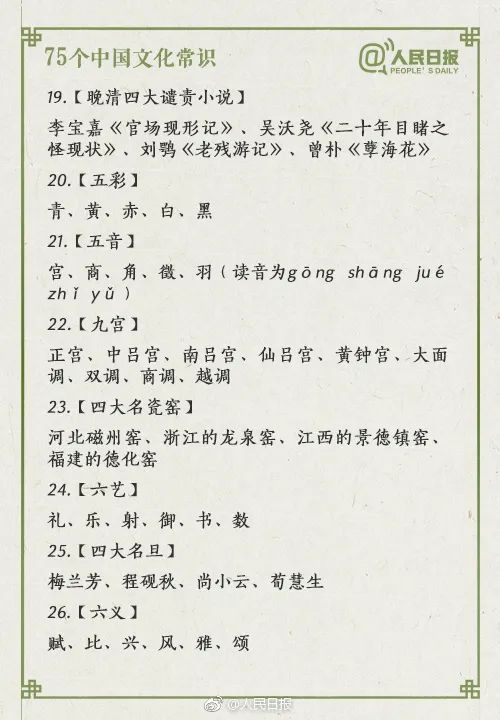 75个中国文化常识
@人民日报
PEOPLE'S DAILY
19.【晚清四大谴责小说】
李宝嘉《官场现形记》、吴沃尧《二十年目睹之
怪现状》、刘鹗《老残游记》、曾朴《孽海花》
20.【五彩】
青、黄、赤、白、黑
21.【五音】
宫、商、角、徵、羽（读音为gōng shāng jué
zhǐ yǔ）
22.【九宫】
正宫、中吕宫、南吕宫、仙吕宫、黄钟宫、大面
调、双调、商调、越调
23.【四大名瓷窑】
河北磁州窑、浙江的龙泉窑、江西的景德镇窑、
福建的德化窑
24.【六艺】
礼、乐、射、御、书、数
25.【四大名旦】
梅兰芳、程砚秋、尚小云、荀慧生
26.【六义】
赋、比、兴、风、雅、颂
@人民日报